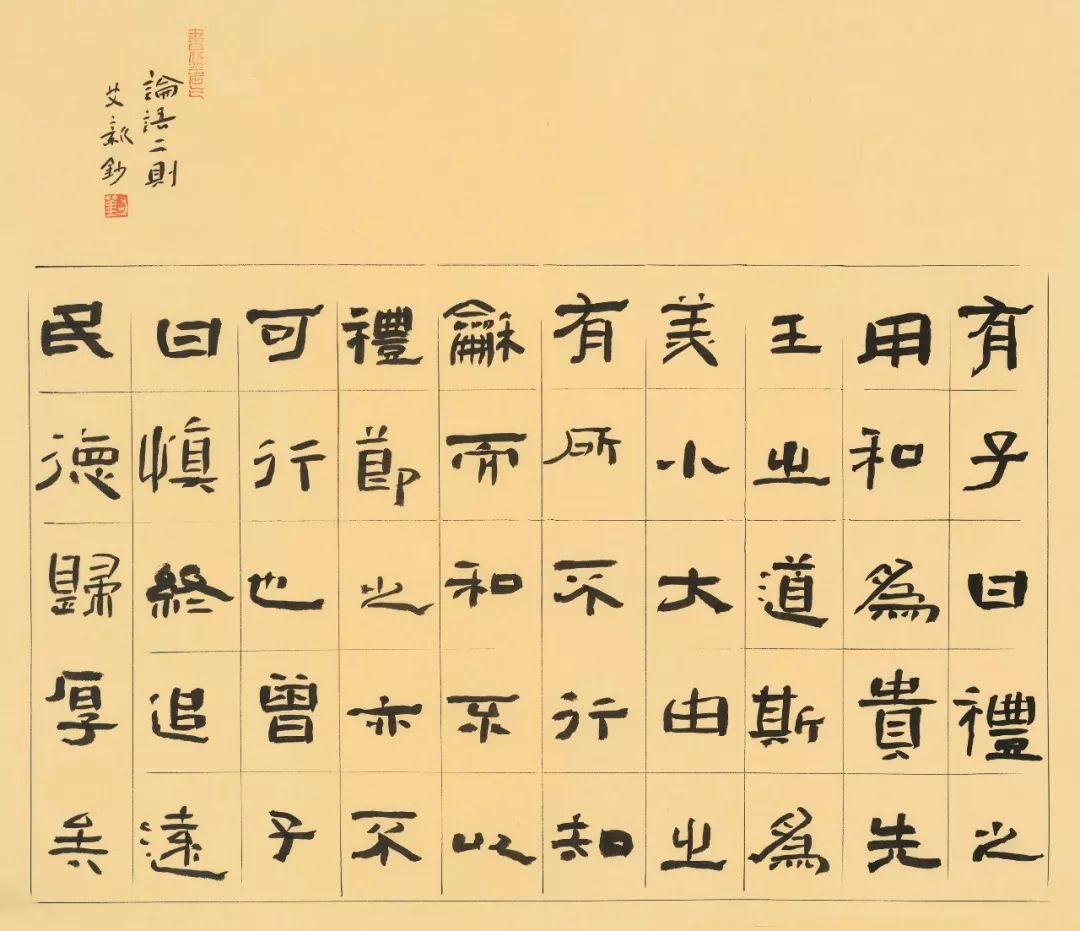 有子曰禮之
用和爲貴先
王之道斯爲
美小大由之
有所不行知
龢而和不以
禮節之亦不
可行也曾子
曰慎終追遠
民德歸厚矣
論語二則
艾 鈔